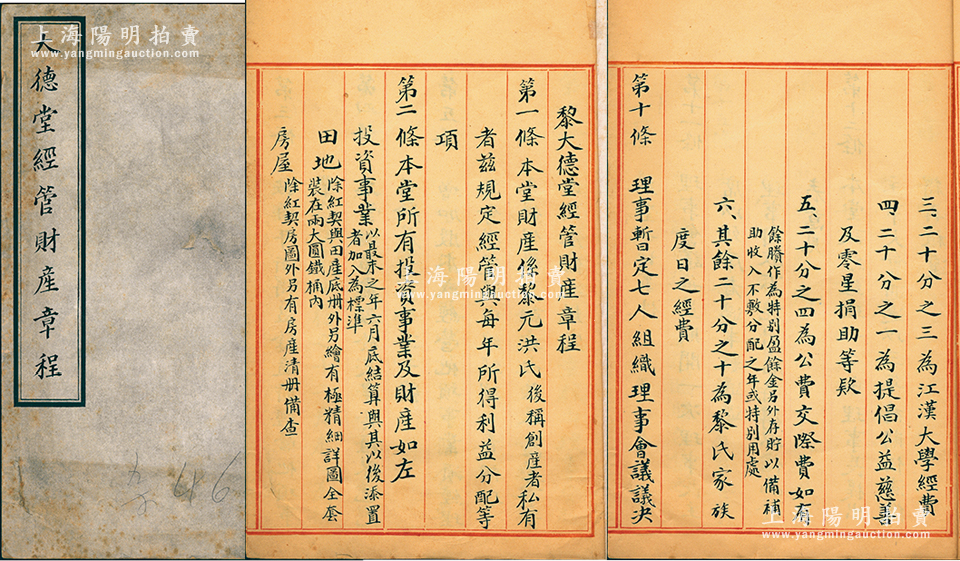 上海陽明拍賣
www.yangmingauction.com
大德堂經管財產章程
546
黎大德堂經管財產章程
第一條本堂財產係黎元洪氏後稱創產者私有
者茲規定經管與每年所得利益分配等
項
第二條本堂所有投資事業及財產如左
投資事業以最末之年六月底結算與其以後添置
者加入為標準
田地除紅契與田產底冊外另繪有極精細詳圖全套
裝在兩大圓鐵桶內
房屋除紅契房圖外另有房產清冊備查
上海陽明拍賣
www.yangmingauction.com
三、二十分之三為江漢大學經費
四、二十分之一為提倡公益慈善
及零星捐助等欵
五、二十分之四為公費交際費如有
餘賸作為特別盈餘金另外存貯以備補
助收入不敷分配之年或特別用處
六、其餘二十分之十為黎氏家族
度日之經費
第十條 理事暫定七人組織理事會議議決
上海陽明拍賣
www.yangmingauction.com